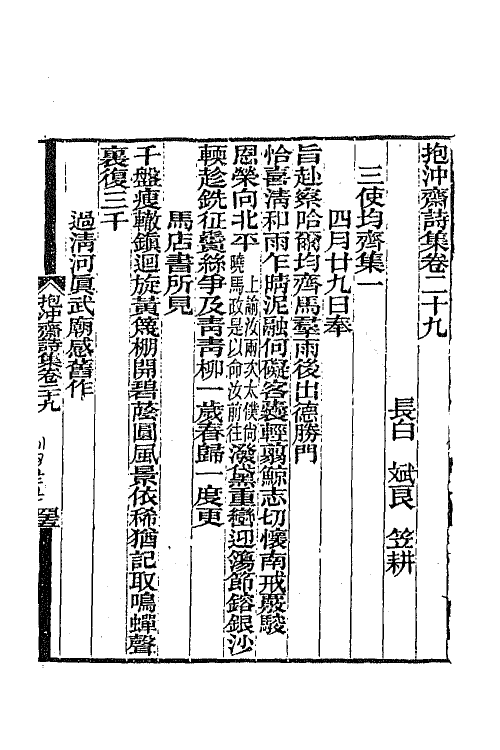 抱沖齋詩集卷二十九
長白 斌良 笠耕
三使均齊集一
四月廿九日奉
旨赴察哈爾均齊馬羣雨後出德勝門
恰喜清和雨乍晴泥融何礙客裝輕翦鯨志切懷南戒嚴駿
恩榮向北平上諭汝兩次太僕尙曉馬政是以命汝前往潑黛重巒迎簜節鎔銀沙
輭趁銑征鬢絲爭及靑靑柳一歲春歸一度更
馬店書所見
千盤瘦轍鎭迴旋黃篾棚開碧蔭圓風景依稀猶記取鳴蟬聲
裏復三千
過淸河眞武廟感舊作
抱沖齋詩集卷二十九